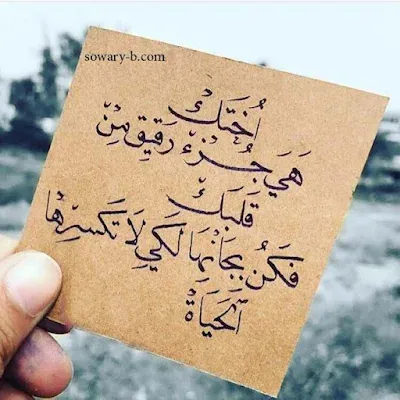 sowary-b.com
أُختَكْ
هَيَ جُزءْ رَقيقْ مِنْ
قَلبَكْ
فَكُنْ بِجَانِبِهَا لَكي لَا تَكسِرهَا
الَحَيَاةْ